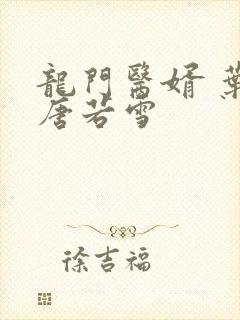 龍門醫婿 葉
唐若雪
徐吉福